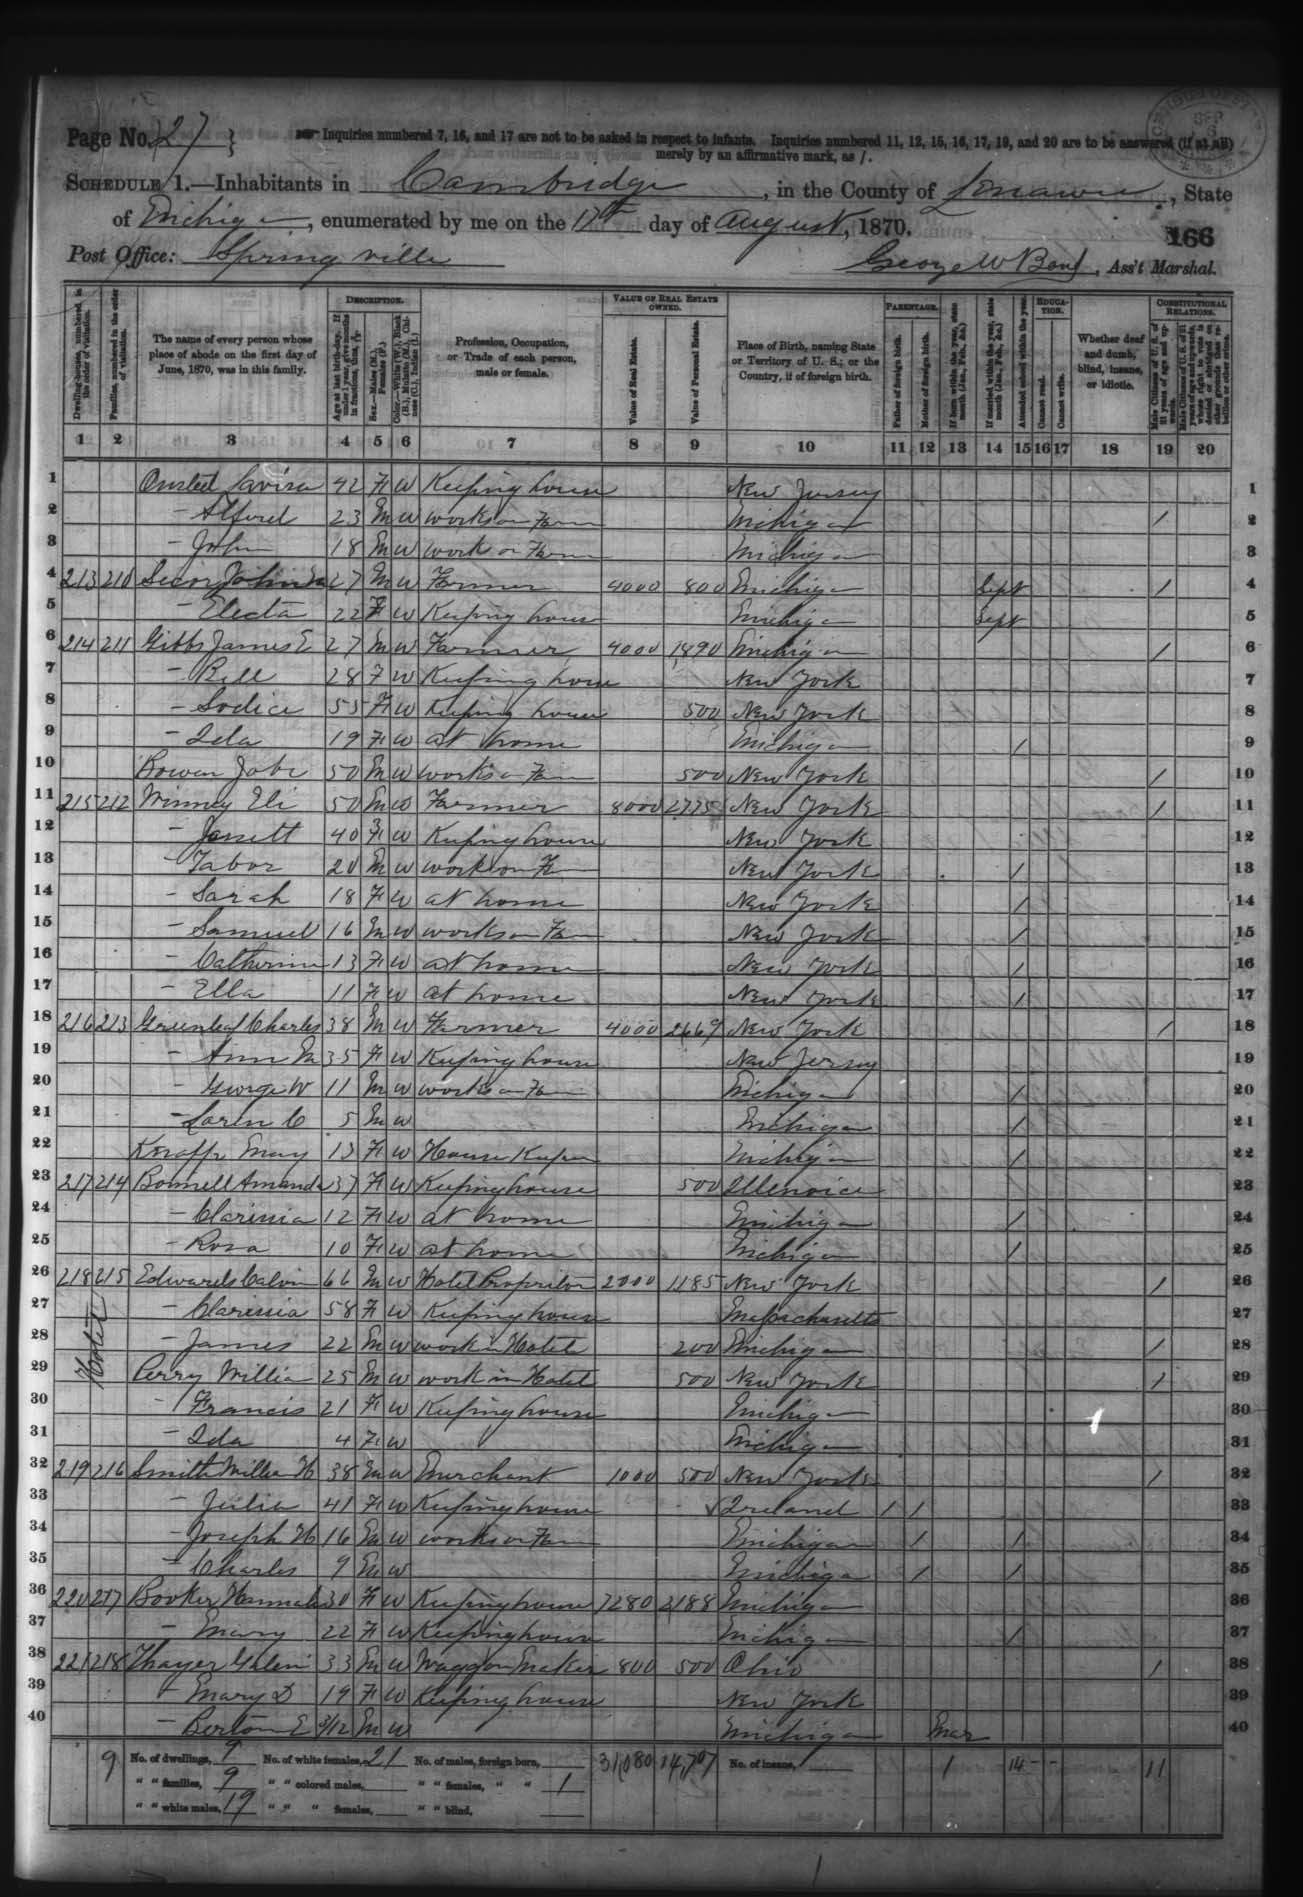 Page No. 27 } Inquiries numbered 7, 16, and 17 are not to be asked in respect to infants. Inquiries numbered 11, 12, 15, 16, 17, 19, and 20 are to be answered (if at all)
merely by an affirmative mark, as /.
SCHEDULE 1.—Inhabitants in Cambridge, in the County of Lenawee, State
of Michigan, enumerated by me on the 17th day of August, 1870.
166
Post Office: Springville George W Bond, Ass't Marshal.
Dwelling-houses, numbered in the order of visitation.
Families, numbered in the order of visitation.
The name of every person whose place of abode on the first day of June, 1870, was in this family.
DESCRIPTION.
Age at last birth-day. If under 1 year, give months in fractions, thus, 3/12
Sex.—Males (M.), Females (F.)
Color.—White (W.), Black (B.), Mulatto (M.), Chinese (C.), Indian (I.)
Profession, Occupation, or Trade of each person, male or female.
VALUE OF REAL ESTATE OWNED.
Value of Real Estate.
Value of Personal Estate.
Place of Birth, naming State or Territory of U. S.; or the Country, if of foreign birth.
PARENTAGE.
Father of foreign birth.
Mother of foreign birth.
If born within the year, state month (Jan., Feb., &c.)
If married within the year, state month (Jan., Feb., &c.)
Attended school within the year.
EDUCATION.
Cannot read.
Cannot write.
Whether deaf and dumb, blind, insane, or idiotic.
CONSTITUTIONAL RELATIONS.
Male Citizens of U. S. of 21 years of age and upwards.
Male Citizens of U. S. of 21 years of age and upwards, whose right to vote is denied or abridged on other grounds than rebellion or other crime.
1 2 3 4 5 6 7 8 9 10 11 12 13 14 15 16 17 18 19 20
1 Onsted Lavisa 42 F W Keeping house New Jersey 1
2 — Alford 23 M W works on Farm Michigan / 2
3 — John 18 M W work on Farm Michigan 3
4 213 210 Secor John M 27 M W Farmer 4000 800 Michigan Sept / 4
5 — Electa 22 F W Keeping house Michigan Sept 5
6 214 211 Gibbs James E 27 M W Farmer 4000 1890 Michigan / 6
7 — Bell 28 F W Keeping house New York 7
8 — Sodice 55 F W Keeping house 500 New York 8
9 — Ida 19 F W at home Michigan / 9
10 Bowen Jobe 50 M W works on Farm 500 New York / 10
11 215 212 Winney Eli 50 M W Farmer 8000 2775 New York / 11
12 — Jerrett 40 F W Keeping house New York 12
13 — Tabor 20 M W work on Farm New York / 13
14 — Sarah 18 F W at home New York / 14
15 — Samuel 16 M W works on Farm New York / 15
16 — Catherine 13 F W at home New York / 16
17 — Ella 11 F W at home New York / 17
18 216 213 Greenleaf Charles 38 M W Farmer 4000 2669 New York / 18
19 — Ann M 35 F W Keeping house New Jersey 19
20 — George W 11 M W works on Farm Michigan / 20
21 — Loren C 5 M W Michigan / 21
22 Knapp Mary 13 F W House Keeper Michigan / 22
23 217 214 Bonnell Amanda 37 F W Keeping house 500 Illenoice 23
24 — Clarissia 12 F W at home Michigan / 24
25 — Rosa 10 F W at home Michigan / 25
26 218 215 Edwards Calvin 66 M W Hotel Proprietor 2000 1185 New York / 26
Hotel
27 — Clarissia 58 F W Keeping house Massachusetts 27
28 — James 22 M W work in Hotel 200 Michigan / 28
29 Perry William 25 M W work in Hotel 500 New York / 29
30 — Francis 21 F W Keeping house Michigan 30
31 — Ida 4 F W Michigan 31
32 219 216 Smith William H 38 M W Merchant 1000 500 New York / 32
33 — Julia 41 F W Keeping house Ireland / / 33
34 — Joseph H 16 M W works on Farm Michigan / / 34
35 — Charles 9 M W Michigan / / 35
36 220 217 Booker Hannah 30 F W Keeping house 7280 2188 Michigan 36
37 — Mary 22 F W Keeping house Michigan / 37
38 221 218 Thayer Galen 33 M W Waggon Maker 800 500 Ohio / 38
39 — Mary D 19 F W Keeping house New York 39
40 — Berton E 3/12 M W Michigan Mar 40
9 No. of dwellings, 9 No. of white females, 21 No. of males, foreign born, 31,080 14,707 No. of insane, 1 14 - - 11
" " families, 9 " " colored males, " " females, " " 1
" " white males, 19 " " " females, " " blind,